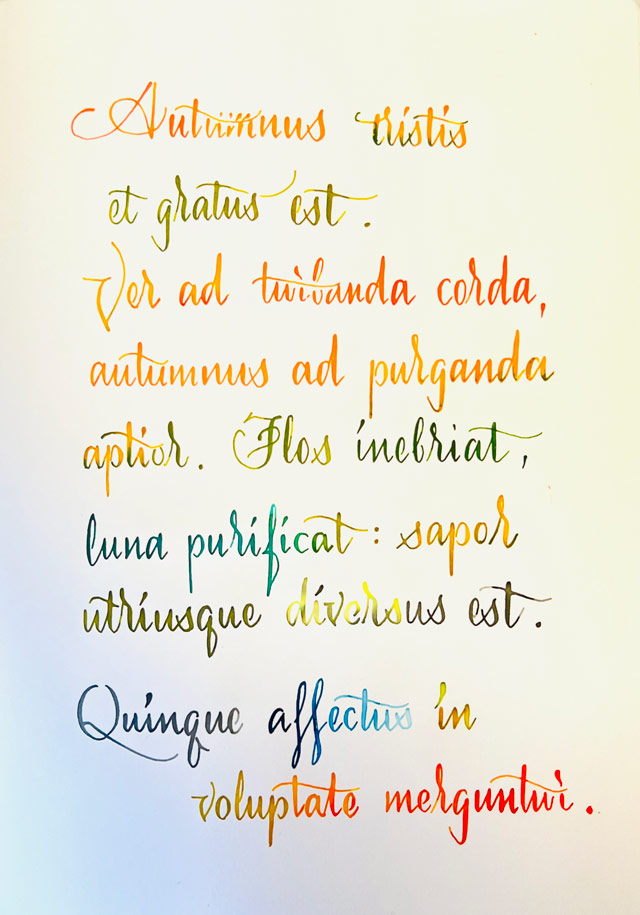 Autumnus tristis
et gratus est.
Ver ad turbanda corda,
autumnus ad purganda
aptior. Flos inebriat,
luna purificat: sapor
utriusque diversus est.
Quinque affectus in
voluptate merguntur.